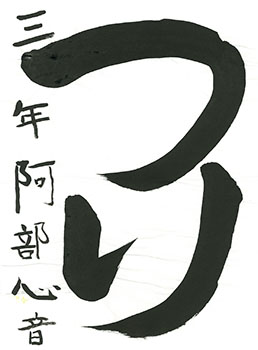 つり
三年阿部心音